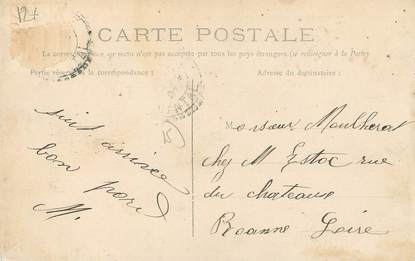 12t
CARTE POSTALE
La correspondance au recto n'est pas acceptée par tous les pays étrangers (se renseigner à la Poste)
Partie réservée à la correspondance
Adresse du destinataire
suis arrivée
bon port
M.
Monsieur Moulherat
chez M Estoc rue
du chateaux
Roanne Loire